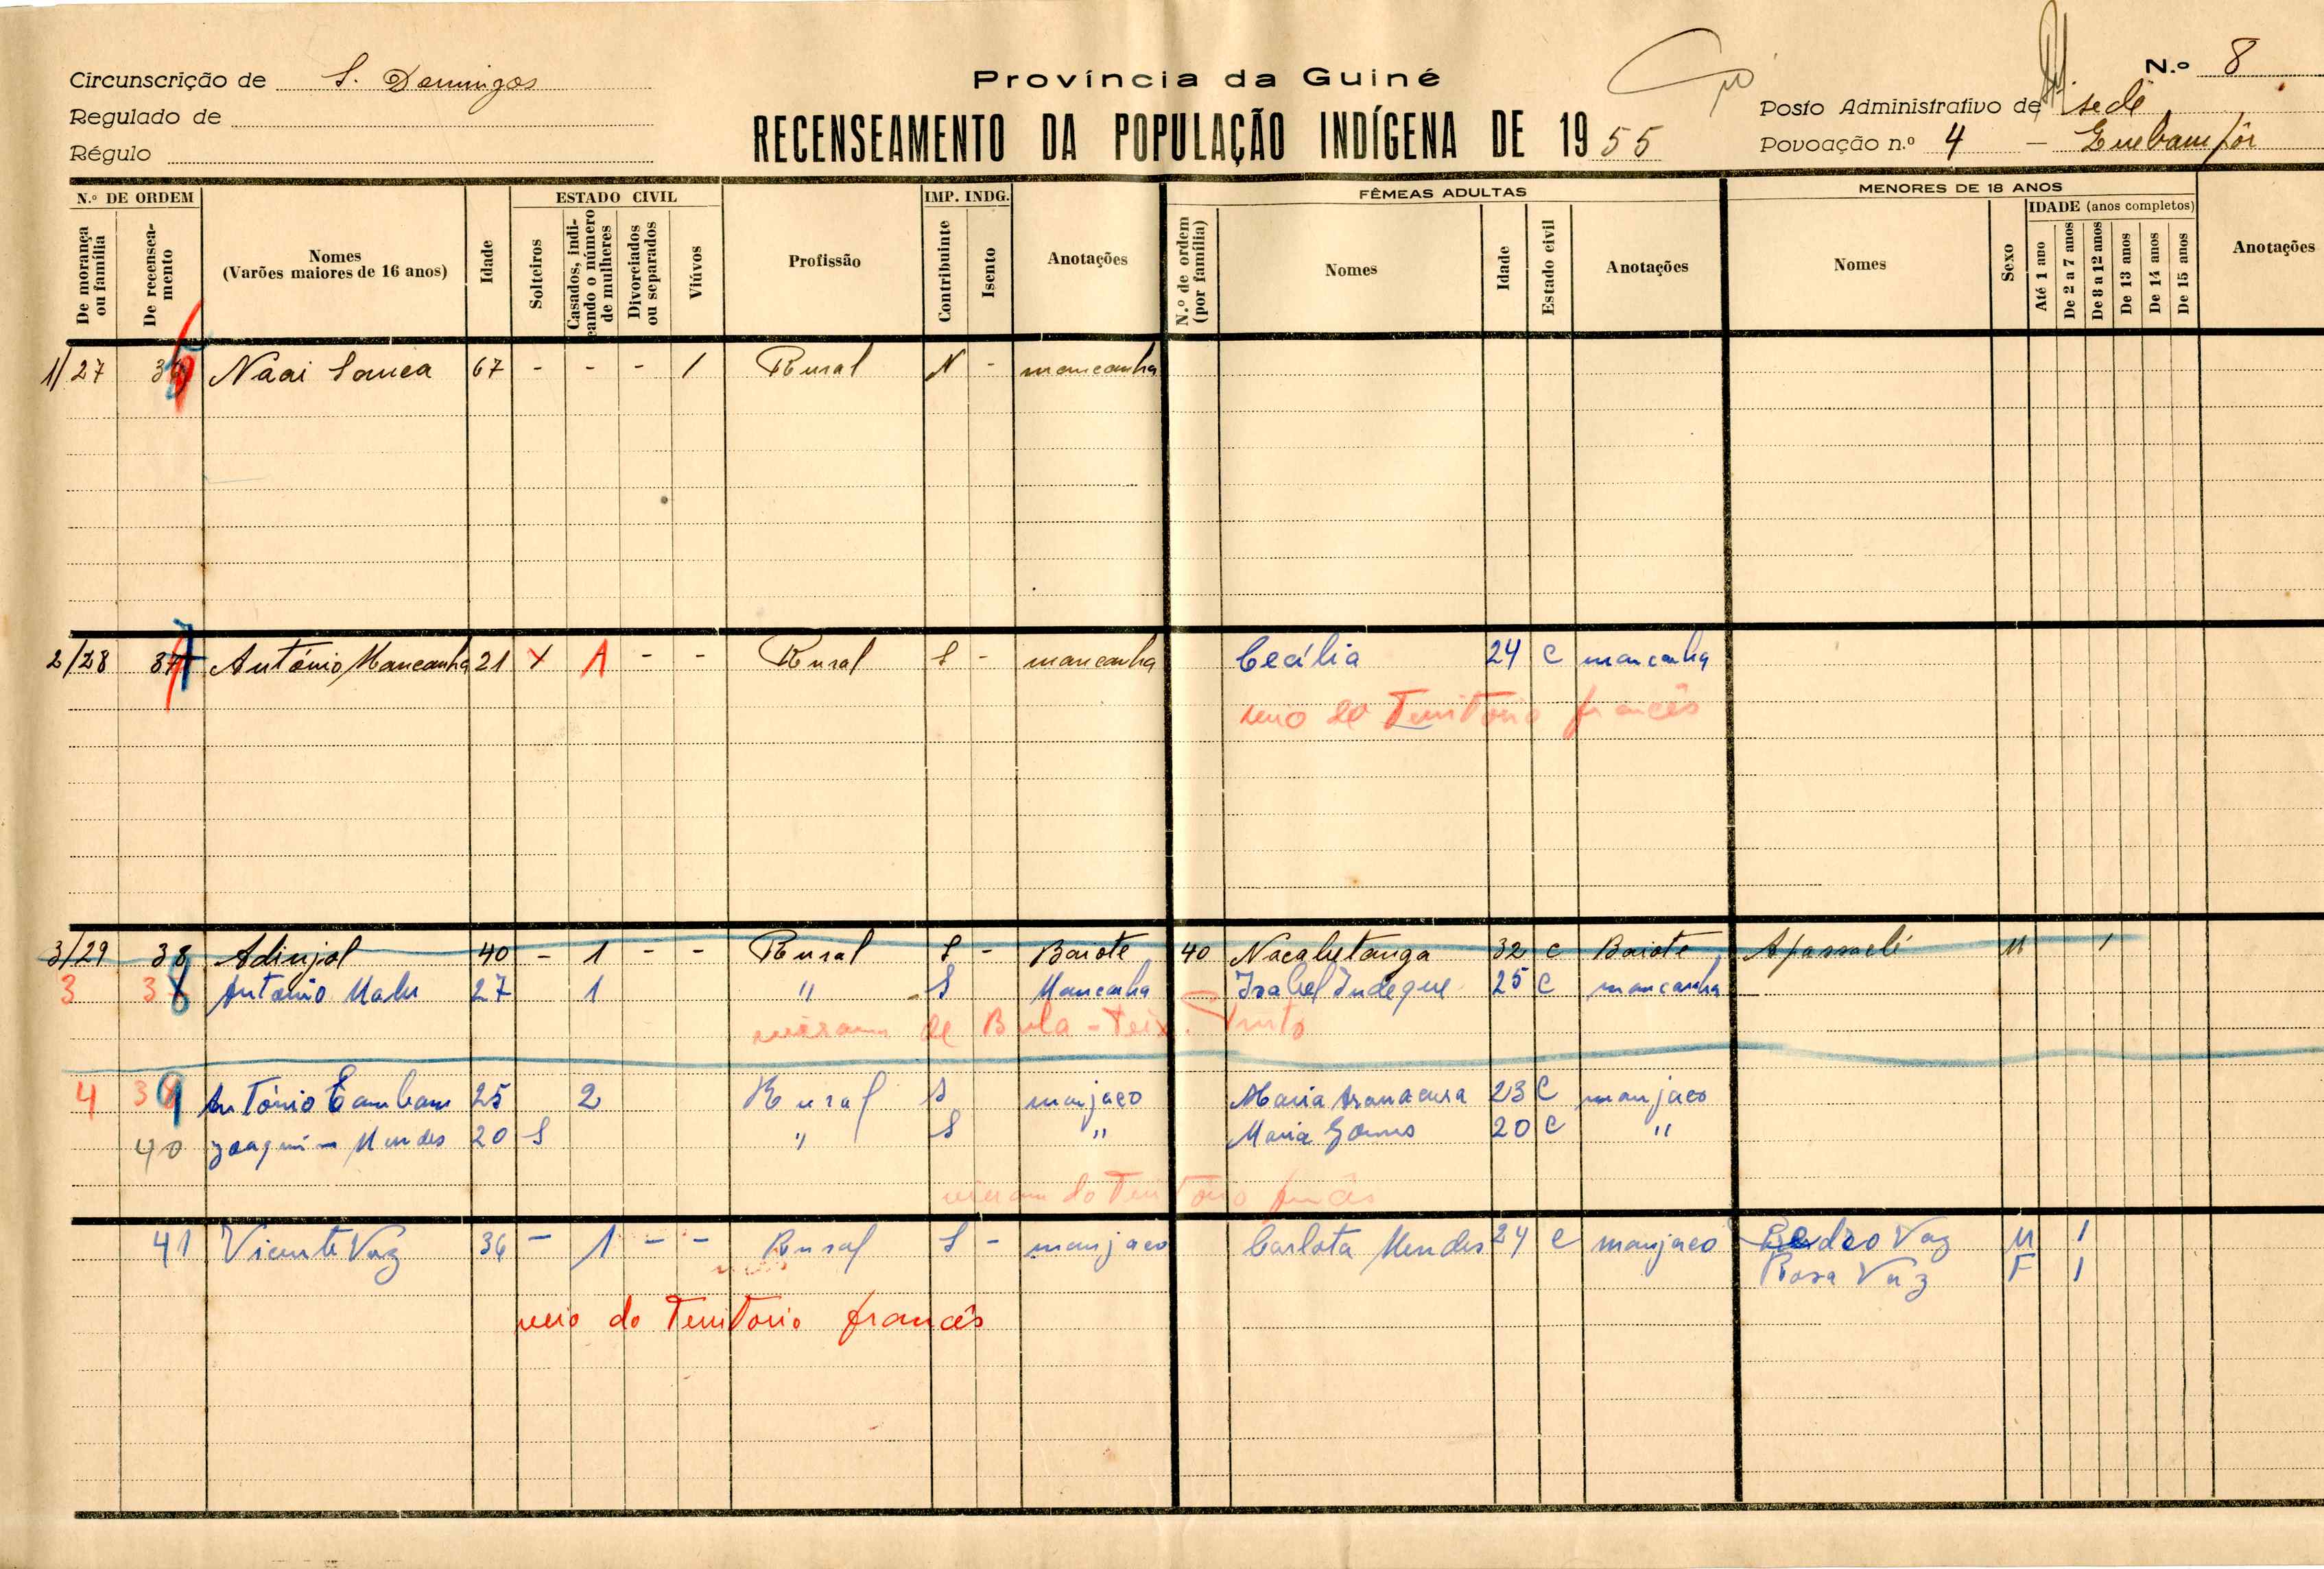 Circunscrição de S. Domingos
Regulado de
Régulo
Província da Guiné
RECENSEAMENTO DA POPULAÇÃO INDÍGENA DE 1955
N.º 8
Posto Administrativo de sede
Povoação n.º 4 -
N.º DE ORDEM
De morança ou família
De recenseamento
Nomes
(Varões maiores de 16 anos)
Idade
ESTADO CIVIL
Solteiros
Casados, indicando o número de mulheres
Divorciados ou separados
Viúvos
Profissão
IMP. INDG.
Contribuinte
Isento
Anotações
FÊMEAS ADULTAS
N.º de ordem (por família)
Nomes
Idade
Estado civil
Anotações
MENORES DE 18 ANOS
Nomes
Sexo
IDADE (anos completos)
Até 1 ano
De 2 a 7 anos
De 8 a 12 anos
De 13 anos
De 14 anos
De 15 anos
Anotações
1/27 36 Naai 67 - - - 1 Rural N - mancanha
2/28 37 António Mancanha 21 X 1 - - Rural S - mancanha Cecília 24 C mancanha
veio do Território francês
3/29 38 Adinjol 40 - 1 - - Rural S - Baiote 40 Nacabetanga 32 C Baiote M 1
3 38 António Malu 27 1 " S Mancanha Isabel Indeque 25 C mancanha
vieram de Bula - Teix. Pinto
4 39 António 25 2 Rural S manjaco Maria 23 C manjaco
40 Joaquim Mendes 20 S " S " Maria Gomes 20 C "
vieram do Território francês
41 Vicente Vaz 36 - 1 - - Rural S - manjaco Carlota Mendes 24 C manjaco Pedro Vaz M 1
Rosa Vaz F 1
veio do Território francês